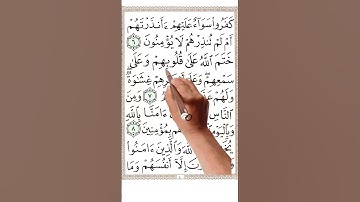 كَفَرُوا سَوَآءٌ عَلَيْهِمْ ءَأَنذَرْتَهُمْ
أَمْ لَمْ تُنذِرْهُمْ لَا يُؤْمِنُونَ ٦
خَتَمَ اللَّهُ عَلَىٰ قُلُوبِهِمْ وَعَلَىٰ
سَمْعِهِمْ وَعَلَىٰ غِشَٰوَةٌ
وَلَهُمْ ٧ وَمِنَ
ءَامَنَّا بِاللَّهِ
وَبِالْيَوْمِ بِمُؤْمِنِينَ ٨
اللَّهَ وَالَّذِينَ ءَامَنُوا
إِلَّآ أَنفُسَهُمْ وَمَا